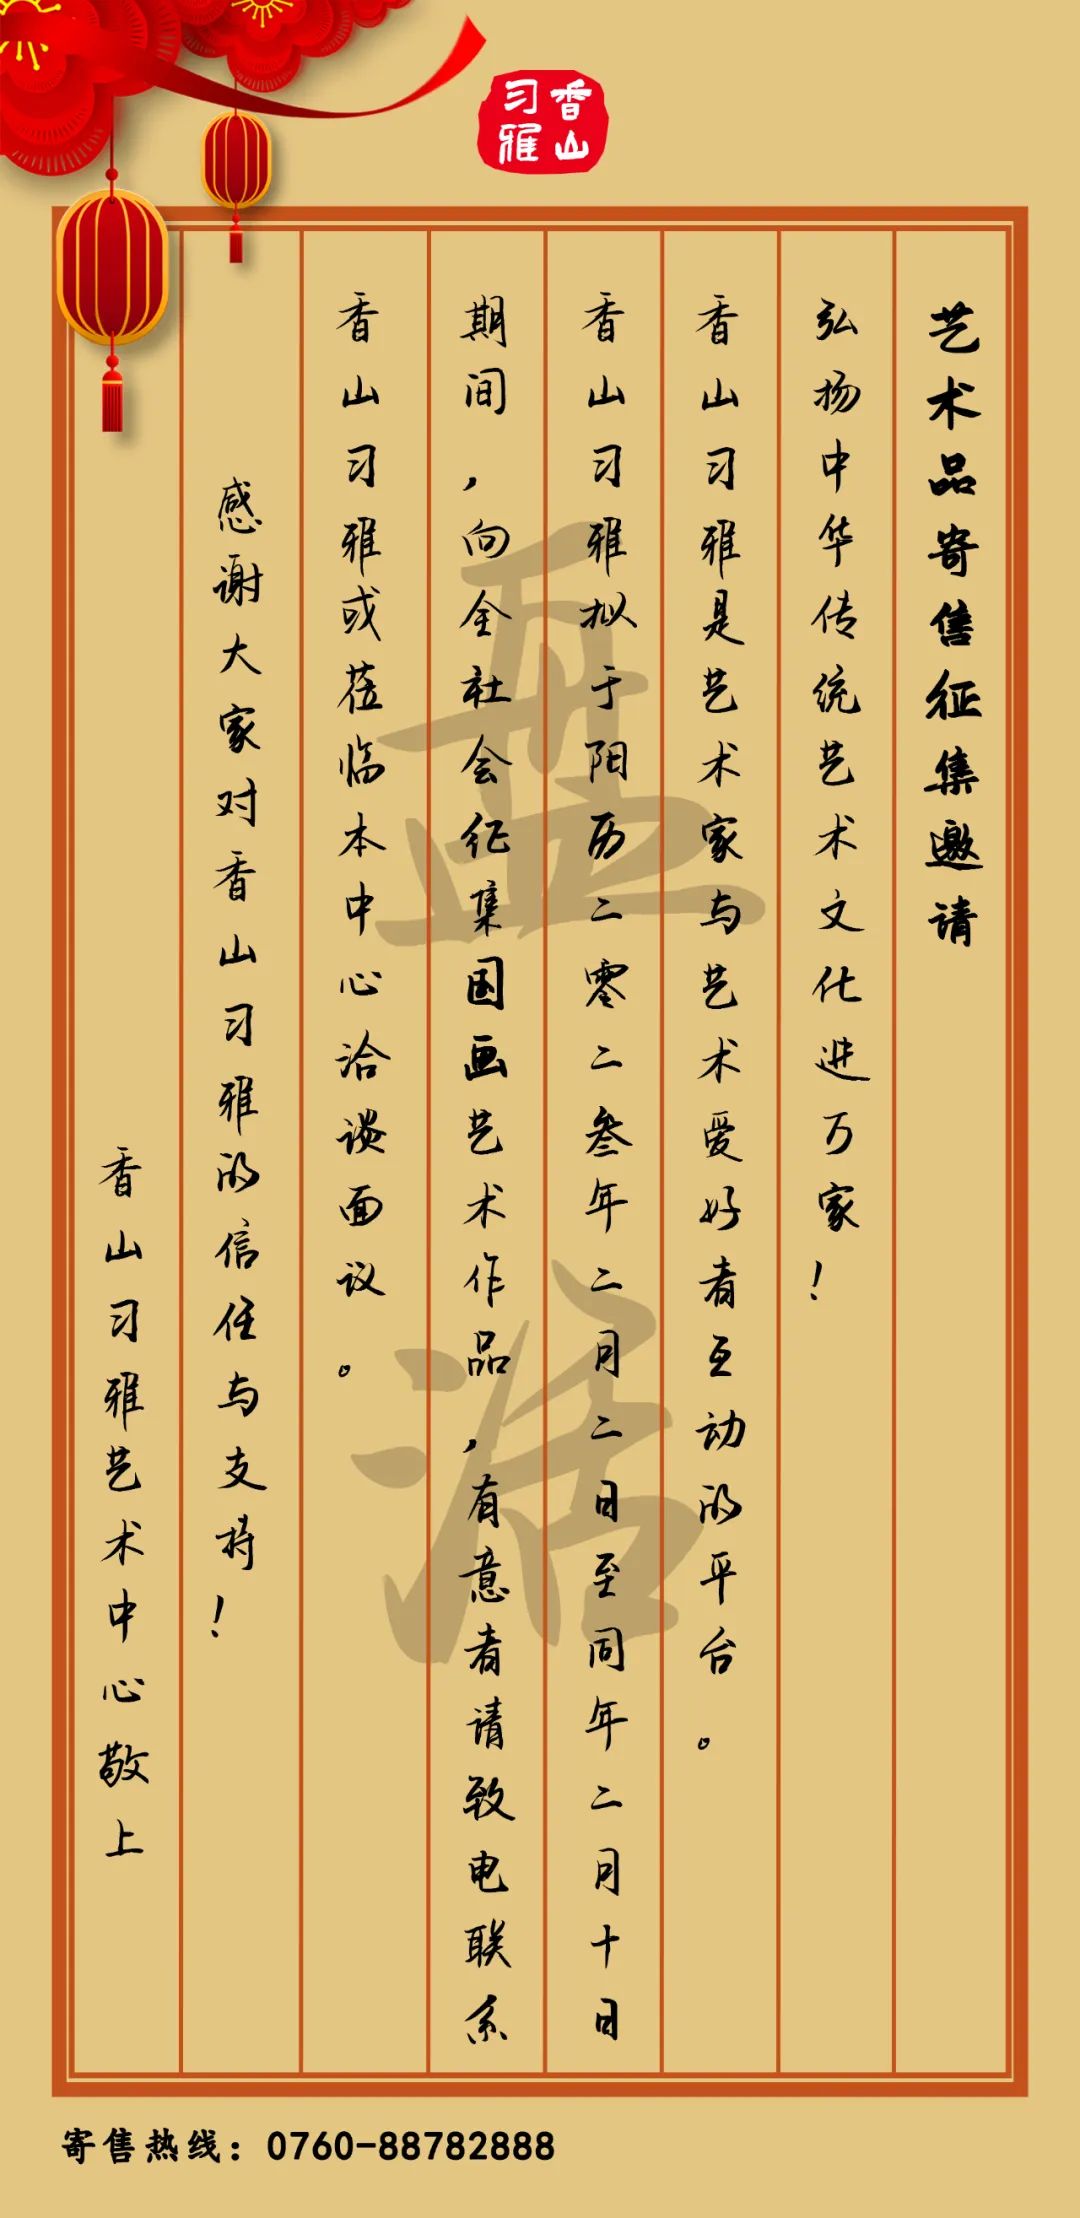 香山
习雅
艺术品寄售征集邀请
弘扬中华传统艺术文化进万家！
香山习雅是艺术家与艺术爱好者互动的平台。
香山习雅拟于阳历二零二叁年二月二日至同年二月十日
期间，向全社会征集国画艺术作品，有意者请致电联系
香山习雅或莅临本中心洽谈面议。
感谢大家对香山习雅的信任与支持！
香山习雅艺术中心敬上
盘活
寄售热线：0760-88782888